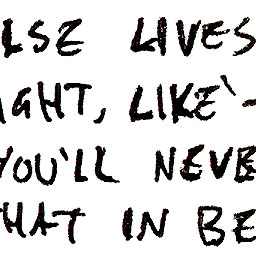 LSE LIVES
IGHT, LIKE -
YOU'LL NEVE
HAT IN BE